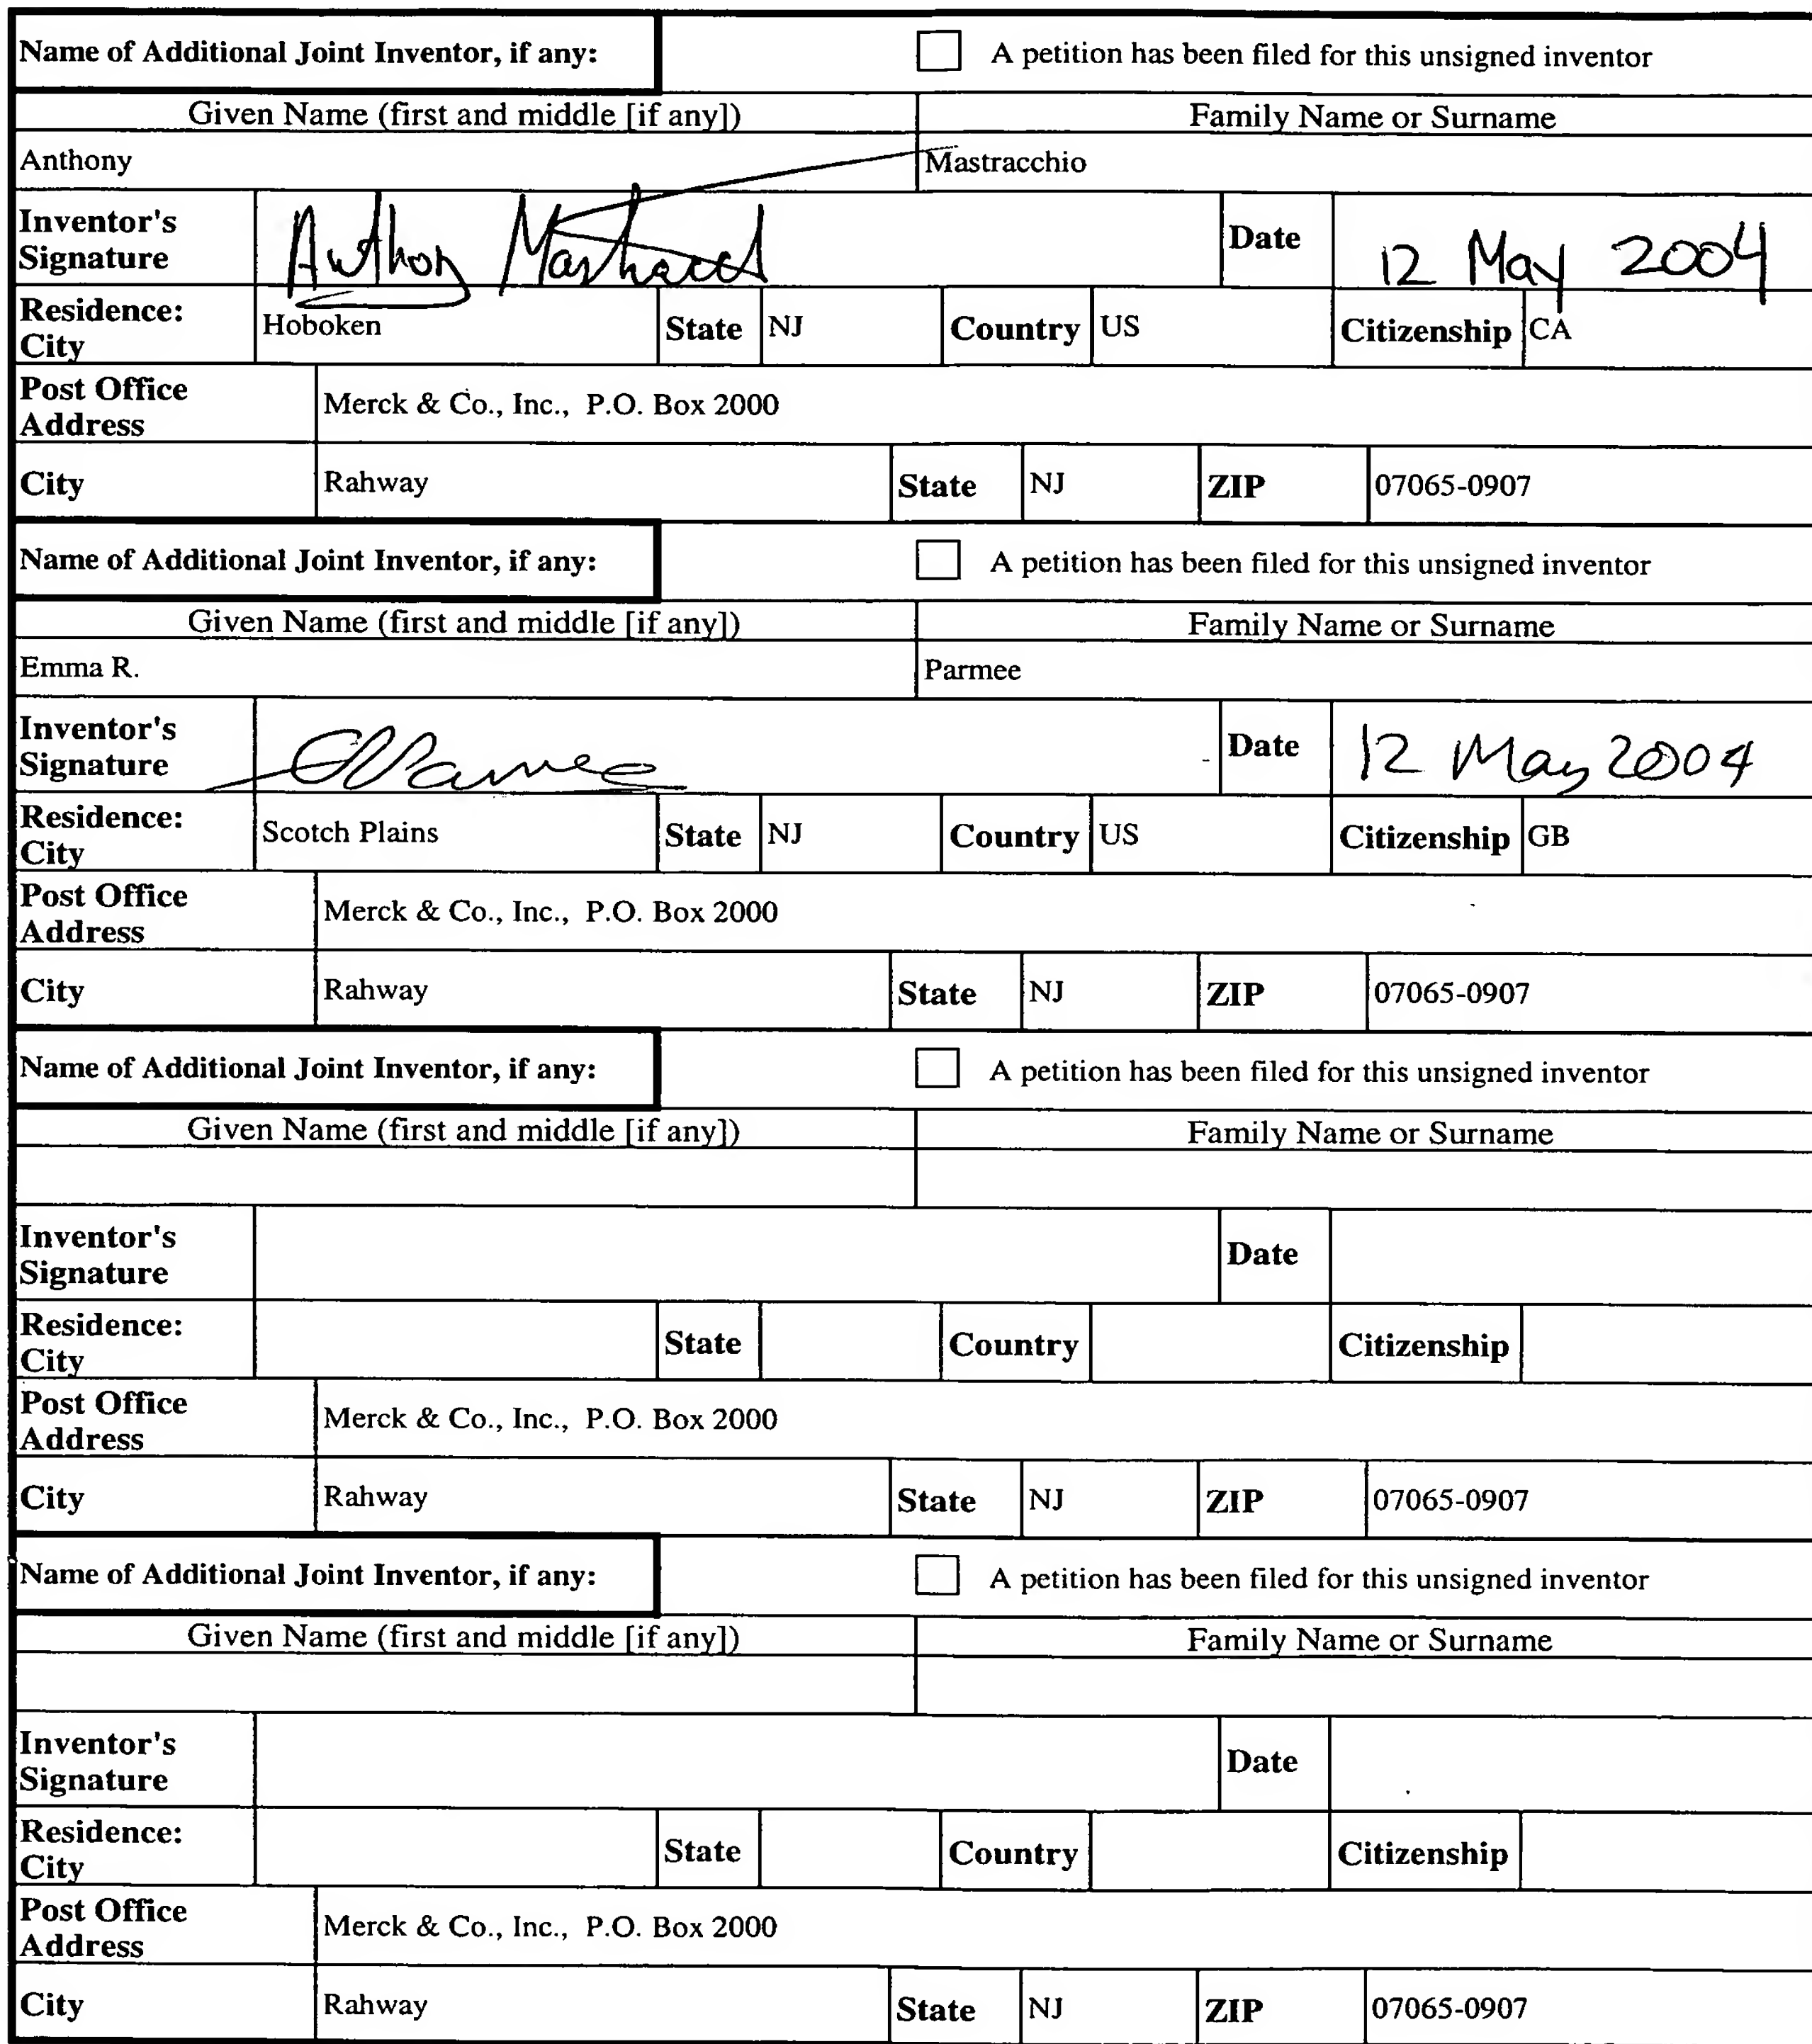 Name of Additional Joint Inventor, if any: A petition has been filed for this unsigned inventor
Given Name (first and middle [if any]) Family Name or Surname
Anthony Mastracchio
Inventor's Signature Anthony Mastracchio Date 12 May 2004
Residence: City Hoboken State NJ Country US Citizenship CA
Post Office Address Merck & Co., Inc., P.O. Box 2000
City Rahway State NJ ZIP 07065-0907
Name of Additional Joint Inventor, if any: A petition has been filed for this unsigned inventor
Given Name (first and middle [if any]) Family Name or Surname
Emma R. Parmee
Inventor's Signature Date 12 May 2004
Residence: City Scotch Plains State NJ Country US Citizenship GB
Post Office Address Merck & Co., Inc., P.O. Box 2000
City Rahway State NJ ZIP 07065-0907
Name of Additional Joint Inventor, if any: A petition has been filed for this unsigned inventor
Given Name (first and middle [if any]) Family Name or Surname
Inventor's Signature Date
Residence: City State Country Citizenship
Post Office Address Merck & Co., Inc., P.O. Box 2000
City Rahway State NJ ZIP 07065-0907
Name of Additional Joint Inventor, if any: A petition has been filed for this unsigned inventor
Given Name (first and middle [if any]) Family Name or Surname
Inventor's Signature Date
Residence: City State Country Citizenship
Post Office Address Merck & Co., Inc., P.O. Box 2000
City Rahway State NJ ZIP 07065-0907